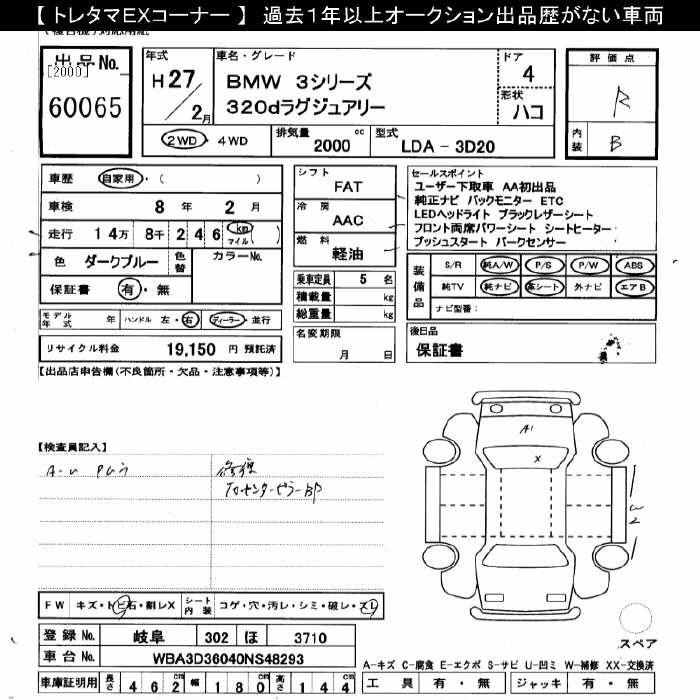 【 トレタマEXコーナー 】 過去1年以上オークション出品歴がない車両
出品No.
[2000]
60065
年式
H27/2月
車名・グレード
BMW 3シリーズ
320dラグジュアリー
ドア
4
形状
ハコ
評価点
R
内装
B
2WD・4WD
排気量 2000 cc
型式 LDA - 3D20
車歴 自家用・( )
車検 8年 2月
走行 14万 8千 246 km マイル( )
色 ダークブルー 色替 カラーNo.
保証書 有・無
モデル年式 年 ハンドル 左・右 ディーラー・並行
リサイクル料金 19,150 円 預託済
シフト
FAT
冷房
AAC
燃料
軽油
乗車定員 5 名
積載量 kg
総重量 kg
名変期限
月 日
セールスポイント
ユーザー下取車 AA初出品
純正ナビ バックモニター ETC
LEDヘッドライト ブラックレザーシート
フロント両席パワーシート シートヒーター
プッシュスタート パークセンサー
装備品
S/R 純A/W P/S P/W ABS
純TV 純ナビ 革シート 外ナビ エアB
ナビ型番:
後日品
保証書
【出品店申告欄(不良箇所・欠品・注意事項等)】
【検査員記入】
A-U Pレう
修復
TOセンターピラーBP
A1
X
W2
FW キズ・トビ石・割レX シート内装 コゲ・穴・汚レ・シミ・破レ・スレ
登録No. 岐阜 302 ほ 3710
車台No. WBA3D36040NS48293
車庫証明用 長さ 462cm 幅 180cm 高さ 144cm
スペア
A-キズ C-腐食 E-エクボ S-サビ U-凹ミ W-補修 XX-交換済
工具 有・無 ジャッキ 有・無